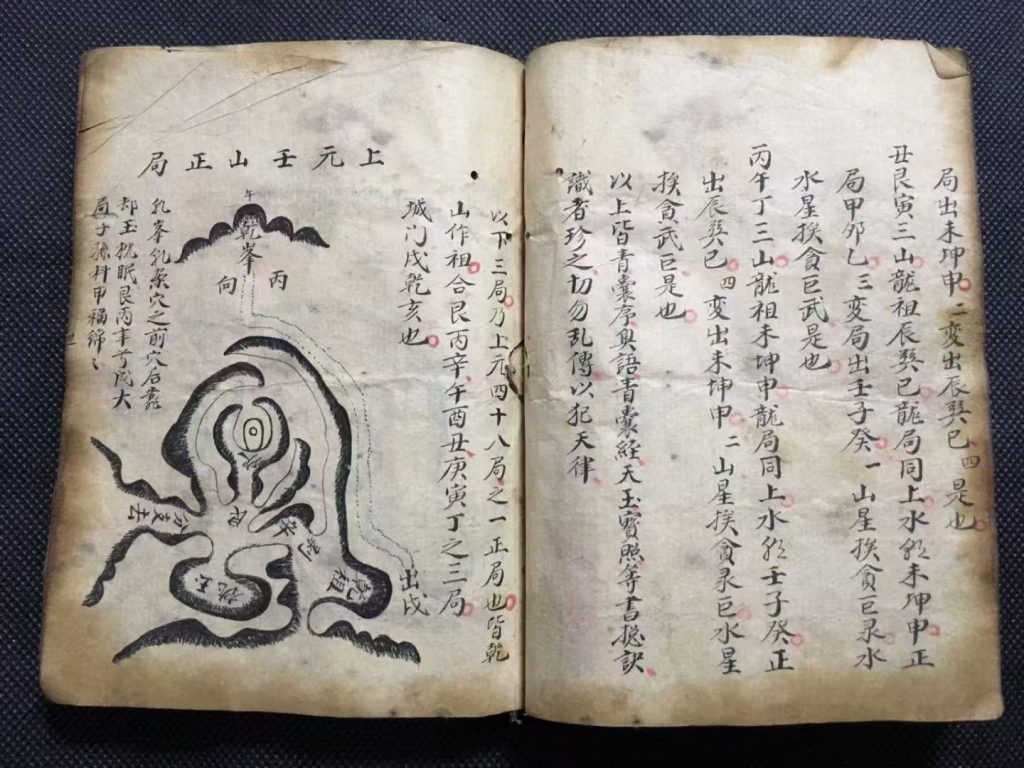 局出未坤申二变出辰巽巳四是也
丑艮寅三山龍祖辰巽巳龍局同上水
未坤申正
局甲卯乙三变局出壬子癸一山星挨貪巨彔水
水星挨貪巨武是也
丙午丁三山龍祖未坤申龍局同上水
壬子癸正
出辰巽巳四变出未坤申二山星挨貪彔巨水星
挨貪武巨是也
以上皆青囊序奧語青囊经天玉寳照等書
訣
識者珍之切勿乱傳以犯天律
以下三局乃上元四十八局之一正局也皆乾
山作祖合艮丙辛午酉丑庚寅丁之三局
城门戌乾亥也
上元壬山正局
午
乾峯
丙
向
乳峯乳案穴之前穴后靠
却玉枕眠艮丙辛
戍大
局子孫科甲福綿々
出戌
乾祖
玉枕